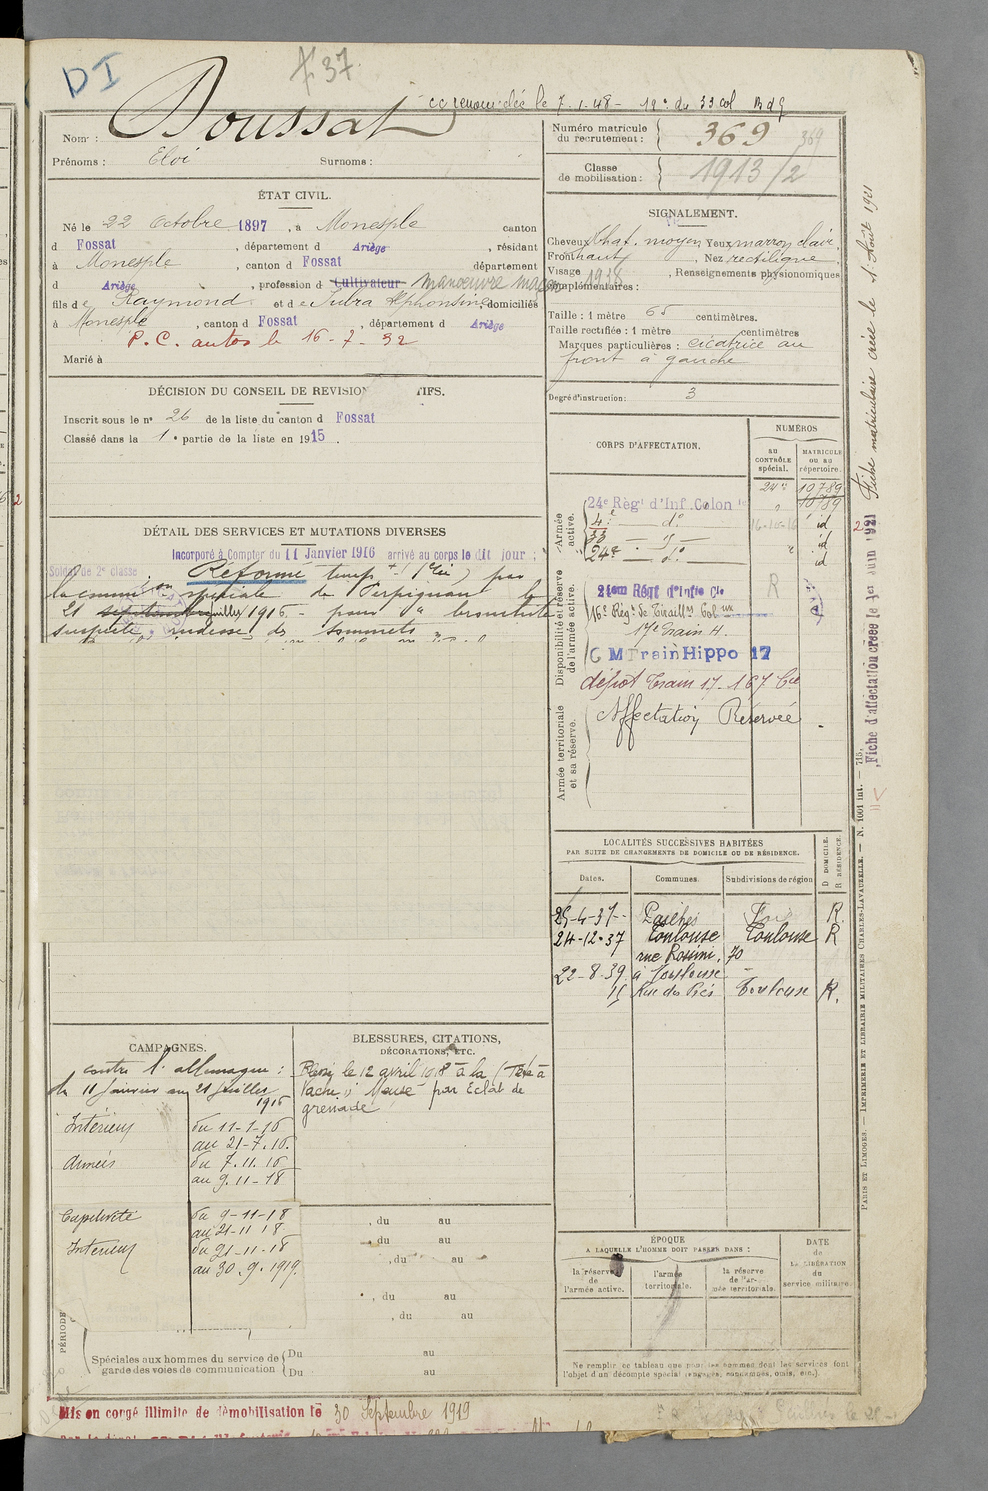 DI
f 37
le 7-1-48 - 12e du 33 col
Nom : Doussat
Prénoms : Eloi Surnoms :
Numéro matricule du recrutement : 369 369
Classe de mobilisation : 1913/2
ÉTAT CIVIL.
Né le 22 Octobre 1897, à Monesple canton
d Fossat, département d Ariège, résidant
à Monesple, canton d Fossat département
d Ariège, profession d Cultivateur manœuvre maçon
fils de Raymond et de Subra Alphonsine, domiciliés
à Monesple, canton d Fossat, département d Ariège
P.C. autos le 16-7-32
Marié à
SIGNALEMENT.
Cheveux Chat. moyen Yeux marron clair
Front haut, Nez rectiligne
Visage 1918, Renseignements physionomiques
complémentaires :
Taille : 1 mètre 65 centimètres.
Taille rectifiée : 1 mètre centimètres
Marques particulières : cicatrice au
front à gauche
Degré d'instruction : 3
DÉCISION DU CONSEIL DE REVISION TIFS.
Inscrit sous le no 26 de la liste du canton d Fossat
Classé dans la 1e partie de la liste en 1915.
DÉTAIL DES SERVICES ET MUTATIONS DIVERSES
Incorporé à Compter du 11 Janvier 1916 arrivé au corps le dit jour ;
Soldat de 2e classe
Réformé temp. par
la commion spéciale de Perpignan le
21 septembre juillet 1916 - pour " bronchite
suspecte, rudesse des sommets
CORPS D'AFFECTATION.
NUMÉROS
AU CONTRÔLE spécial.
MATRICULE OU AU répertoire.
Armée active.
24e Régt d'Inf. Colon 24e 10789
4e do 16-10-16 id
33 - " - id
24e - do id
Disponibilité et réserve de l'armée active.
21em Régt d'Infie Cle R
16e Régt de Tiraill. Col.
17e Train H.
C M Train Hippo 17
dépôt Train 17-167 Cie
Armée territoriale et sa réserve.
Affectation Réservée
LOCALITÉS SUCCESSIVES HABITÉES
PAR SUITE DE CHANGEMENTS DE DOMICILE OU DE RÉSIDENCE.
Dates. Communes. Subdivisions de région D DOMICILE. R RÉSIDENCE.
25-4-37 Pailhès Foix R.
24-12-37 Toulouse Toulouse R
rue Rossini, 70
22-8-39 à Toulouse
15 Rue des Prés Toulouse R.
CAMPAGNES.
contre l'allemagne :
du 11 Janvier au 21 Juillet
1916
Intérieur du 11-1-16
au 21-7-16.
Armées du 7.11.16
au 9.11-18
Captivité du 9-11-18
au 21-11 18
Intérieur du 21-11-18
au 30.9.1919.
BLESSURES, CITATIONS,
DÉCORATIONS, ETC.
Blessé le 12 avril 1918 à la (Tête à
Vache) Meuse par Eclat de
grenade
, du au
, du au
, du au
, du au
, du au
PÉRIODE
Spéciales aux hommes du service de garde des voies de communication { Du au
Du au
ÉPOQUE
A LAQUELLE L'HOMME DOIT PASSER DANS :
la réserve de l'armée active.
l'armée territoriale.
la réserve de l'armée territoriale.
DATE de LA LIBÉRATION du service militaire.
Ne remplir ce tableau que pour les hommes dont les services font
l'objet d'un décompte spécial (engagés, condamnés, omis, etc.).
Mis en congé illimité de démobilisation le 30 Septembre 1919
Fiche matriculaire créée le 1. Août 1921
Fiche d'affectation créée le 1er Juin 1921
PARIS ET LIMOGES. — IMPRIMERIE ET LIBRAIRIE MILITAIRES CHARLES-LAVAUZELLE. — N. 1001 int. — 715.